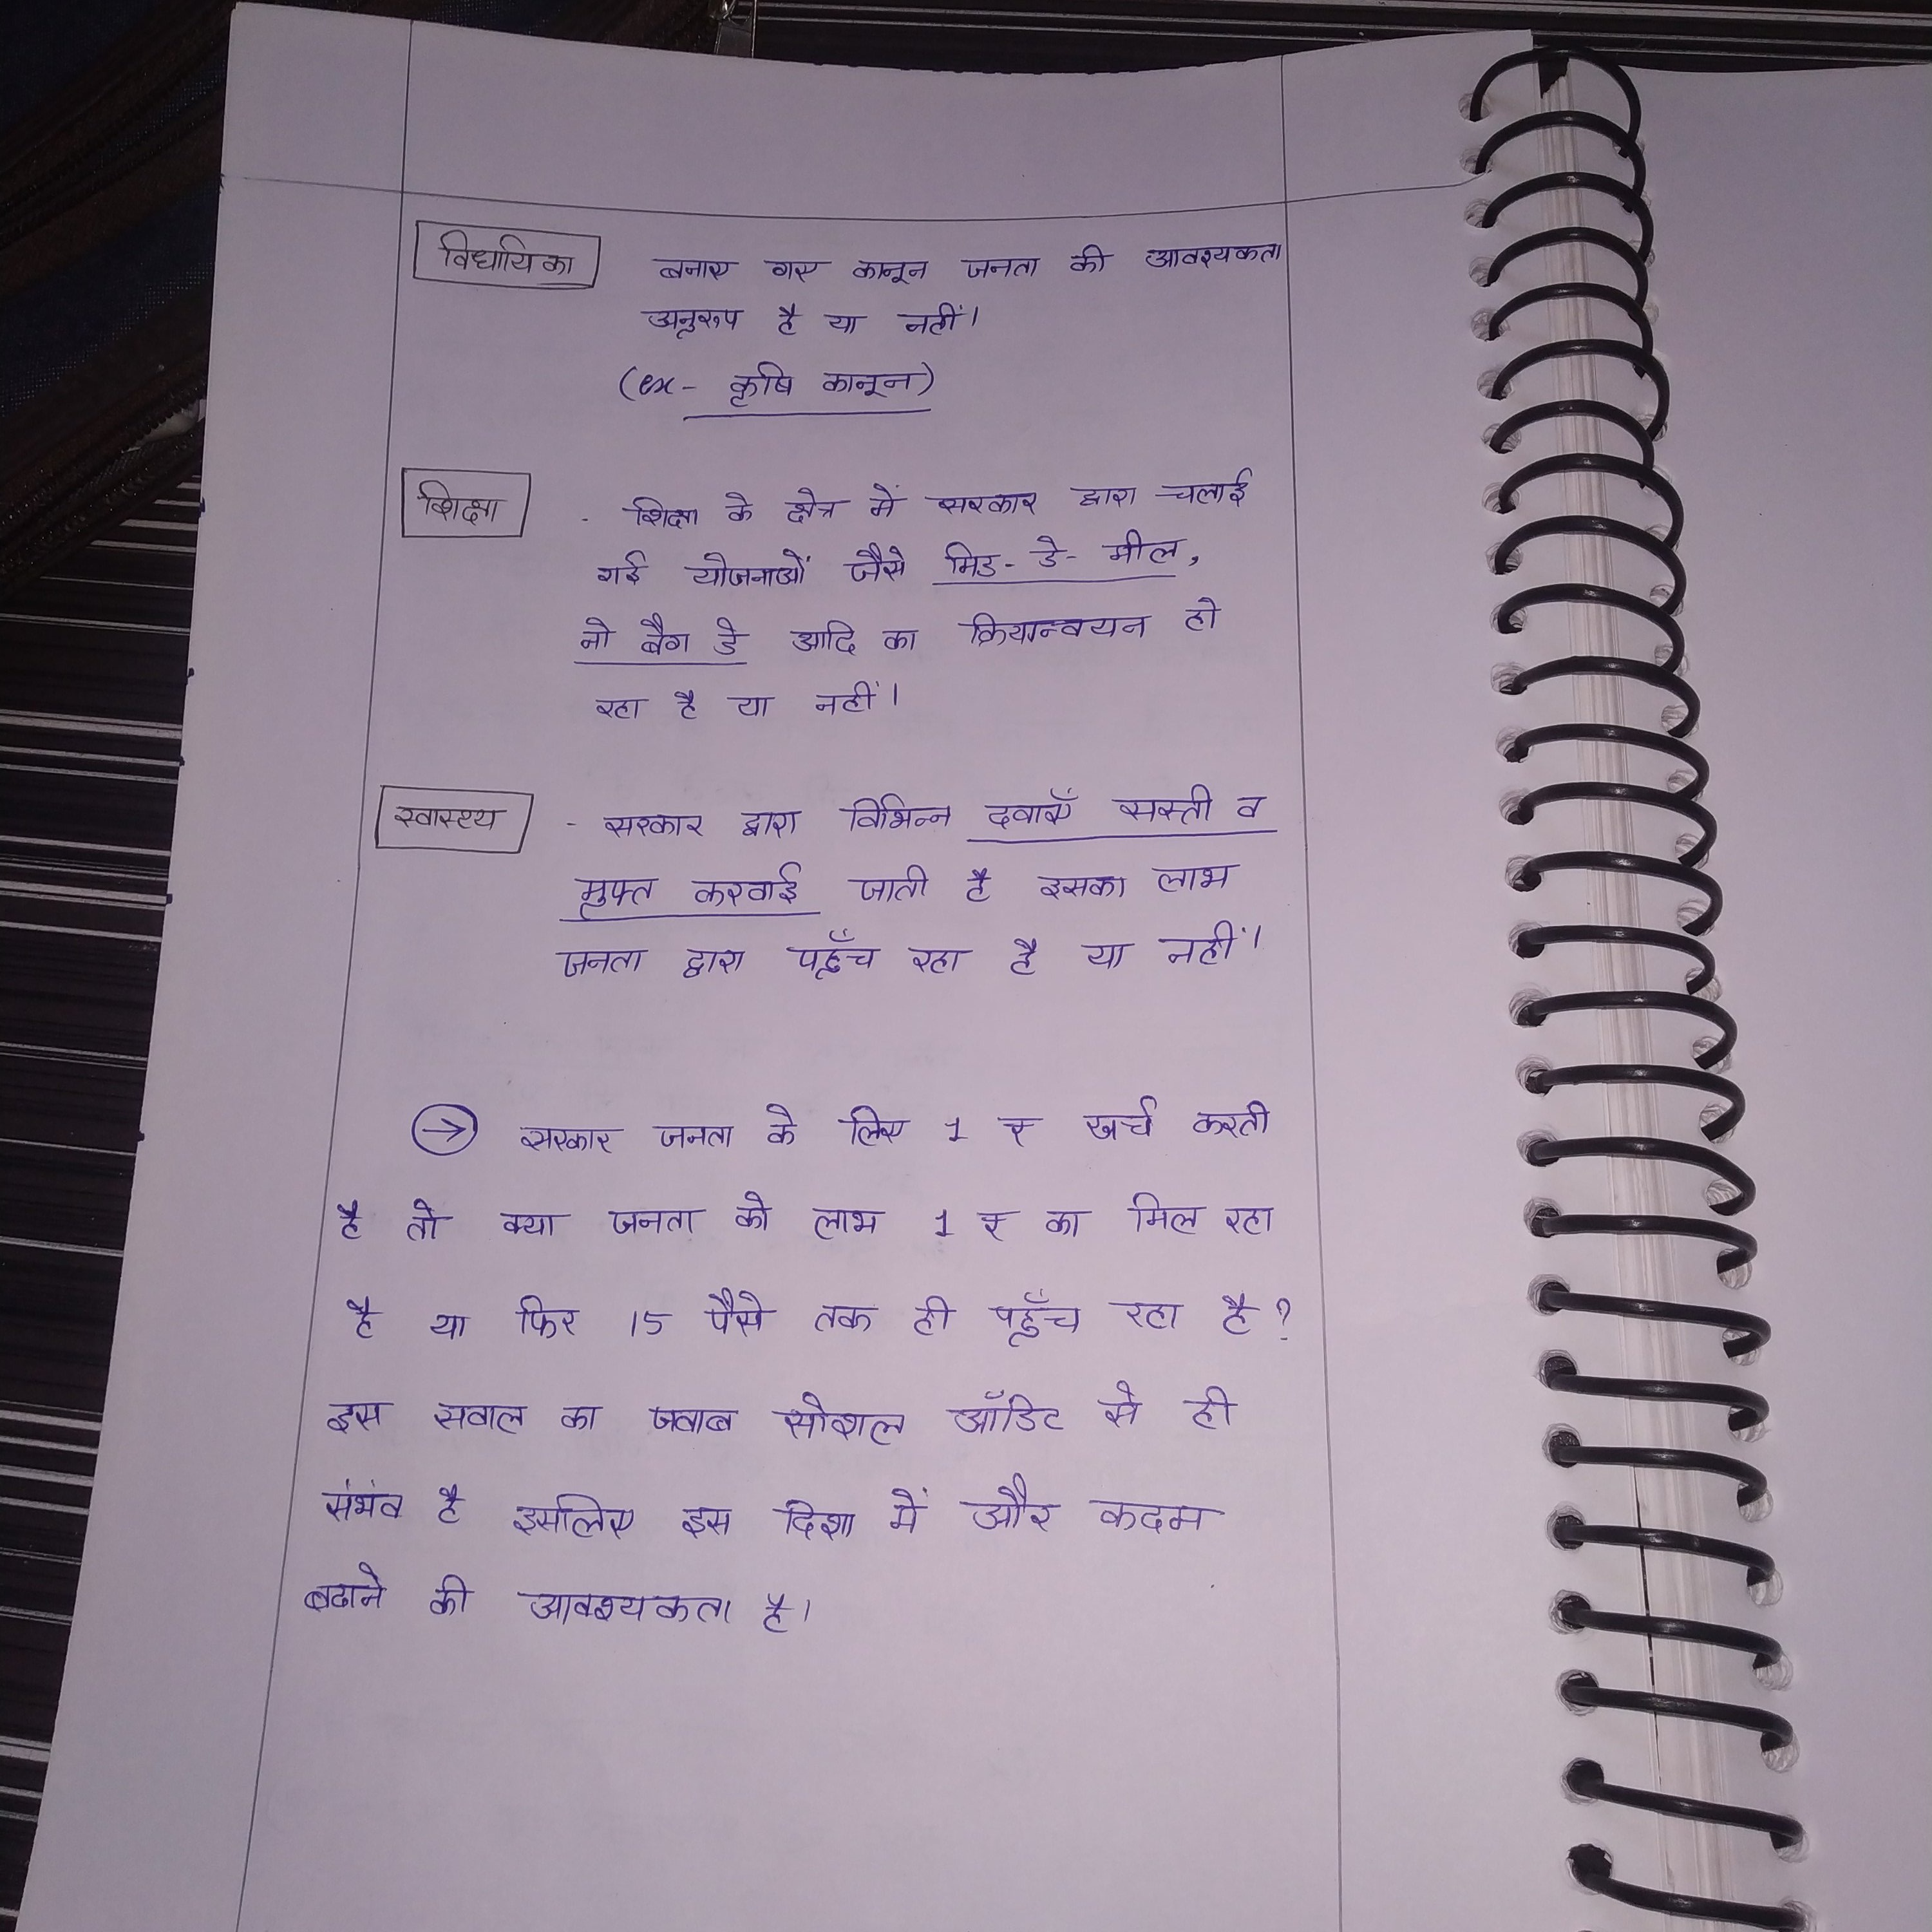 विधायिका बनाए गए कानून जनता की आवश्यकता
अनुरूप है या नहीं।
(ex- कृषि कानून)
शिक्षा - शिक्षा के क्षेत्र में सरकार द्वारा चलाई
गई योजनाओं जैसे मिड-डे-मील,
नो बैग डे आदि का क्रियान्वयन हो
रहा है या नहीं।
स्वास्थ्य - सरकार द्वारा विभिन्न दवाएँ सस्ती व
मुफ्त करवाई जाती है इसका लाभ
जनता द्वारा पहुँच रहा है या नहीं।
→ सरकार जनता के लिए 1 ₹ खर्च करती
है तो क्या जनता को लाभ 1 ₹ का मिल रहा
है या फिर 15 पैसे तक ही पहुँच रहा है?
इस सवाल का जवाब सोशल ऑडिट से ही
संभंव है इसलिए इस दिशा में और कदम
बढाने की आवश्यकता है।